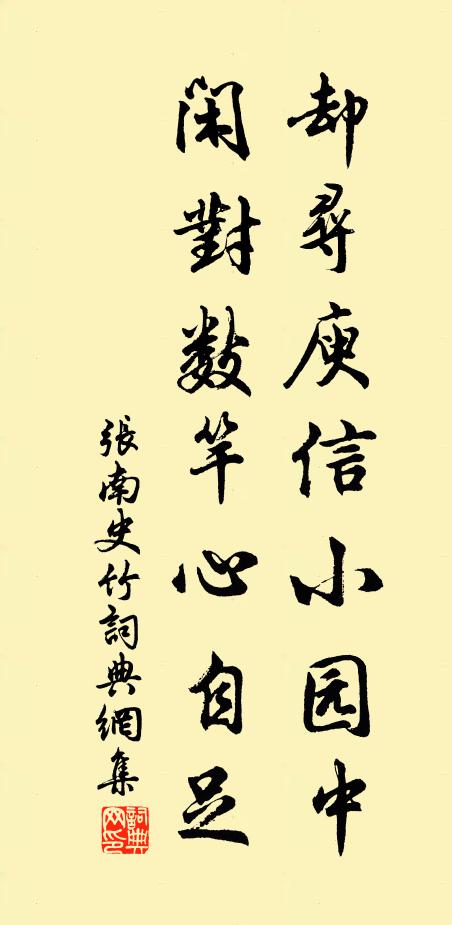 却尋庾信小园中
闲對數竿心自足
張南史竹詞典網集
詞典网印